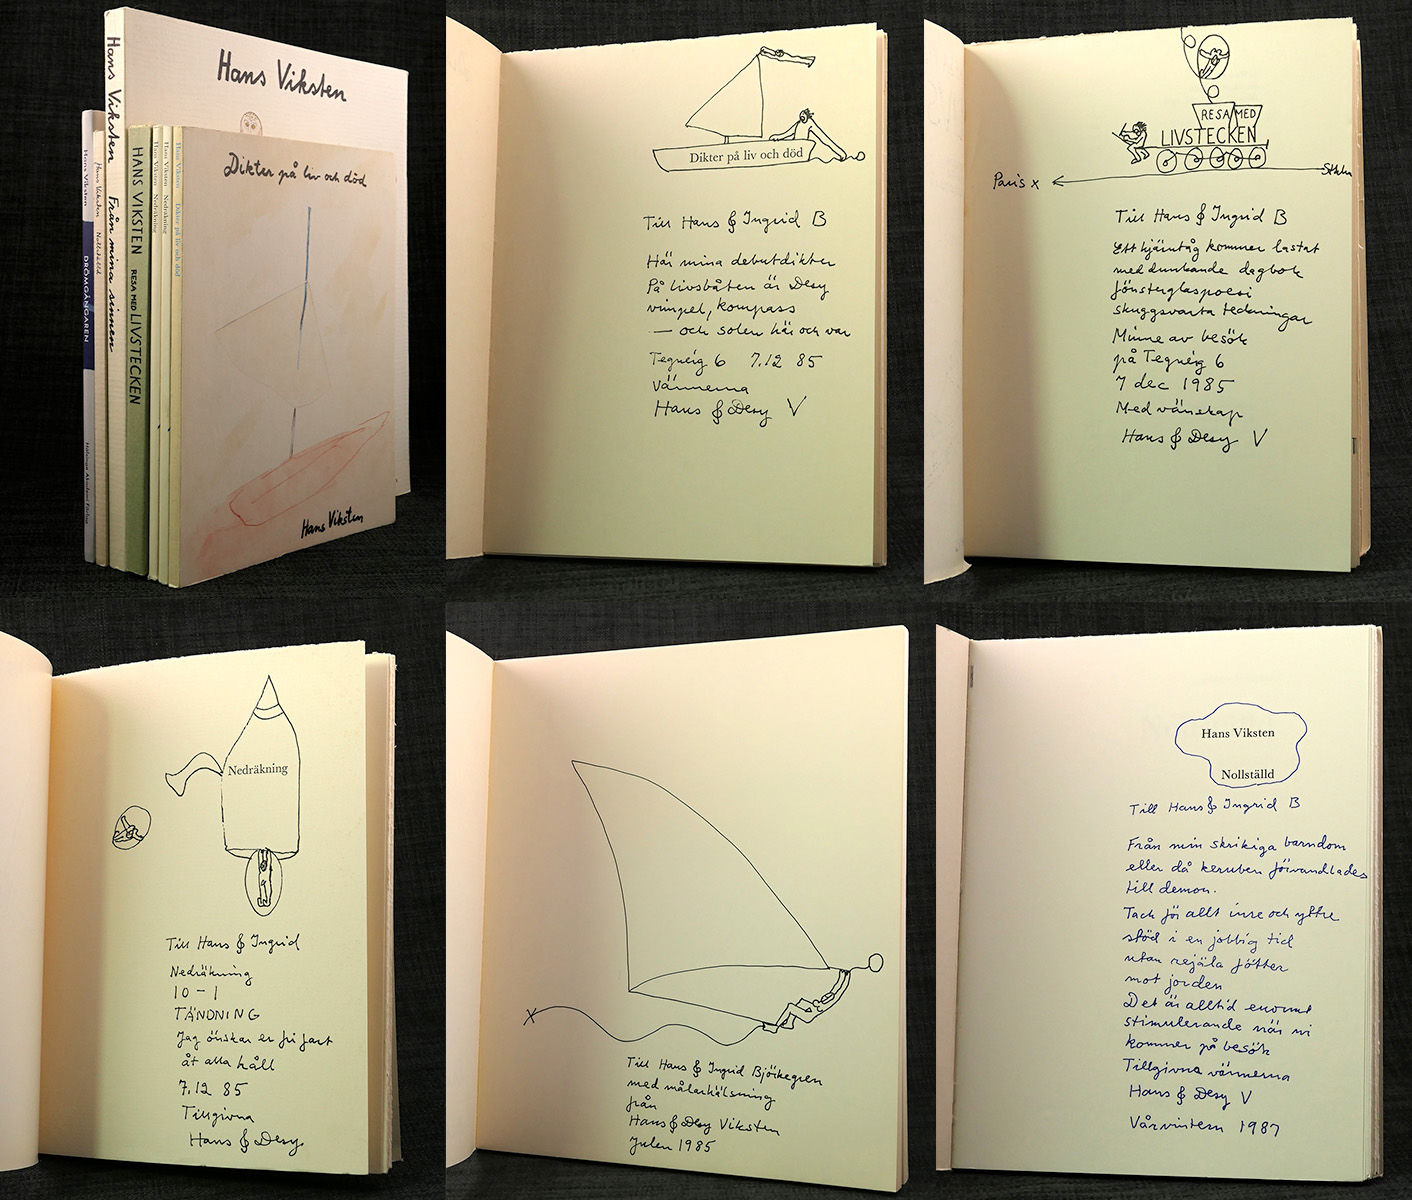 Hans Viksten
Hans Viksten
DRÖMGÅNGAREN
Hälsinge Akademi Förlag
Hans Viksten Nollställd
Hans Viksten Från mina sinnen
HANS VIKSTEN RESA MED LIVSTECKEN
Hans Viksten Nedräkning
Hans Viksten Nedräkning
Hans Viksten Dikter på liv och död
Dikter på liv och död
Hans Viksten
Dikter på liv och död
Till Hans & Ingrid B
Här mina debutdikter
På livsbåten är Desy
vimpel, kompass
— och solen här och var
Tegnérg 6 7.12 85
Vännerna
Hans & Desy V
RESA MED
LIVSTECKEN
Paris x
Sthlm
Till Hans & Ingrid B
Ett hjärntåg kommer lastat
med dunkande dagbok
fönsterglaspoesi
skuggsvarta teckningar
Minne av besök
på Tegnérg 6
7 dec 1985
Med vänskap
Hans & Desy V
Nedräkning
Till Hans & Ingrid
Nedräkning
10 – 1
TÄNDNING
Jag önskar er fri fart
åt alla håll
7.12 85
Tillgivna
Hans & Desy
x
Till Hans & Ingrid Björkegren
med målarhälsning
från
Hans & Desy Viksten
Julen 1985
Hans Viksten
Nollställd
Till Hans & Ingrid B
Från min skrikiga barndom
eller då keruben förvandlades
till demon.
Tack för allt inre och yttre
stöd i en jobbig tid
utan rejäla fötter
mot jorden
Det är alltid enormt
stimulerande när ni
kommer på besök
Tillgivna vännerna
Hans & Desy V
Vårvintern 1987